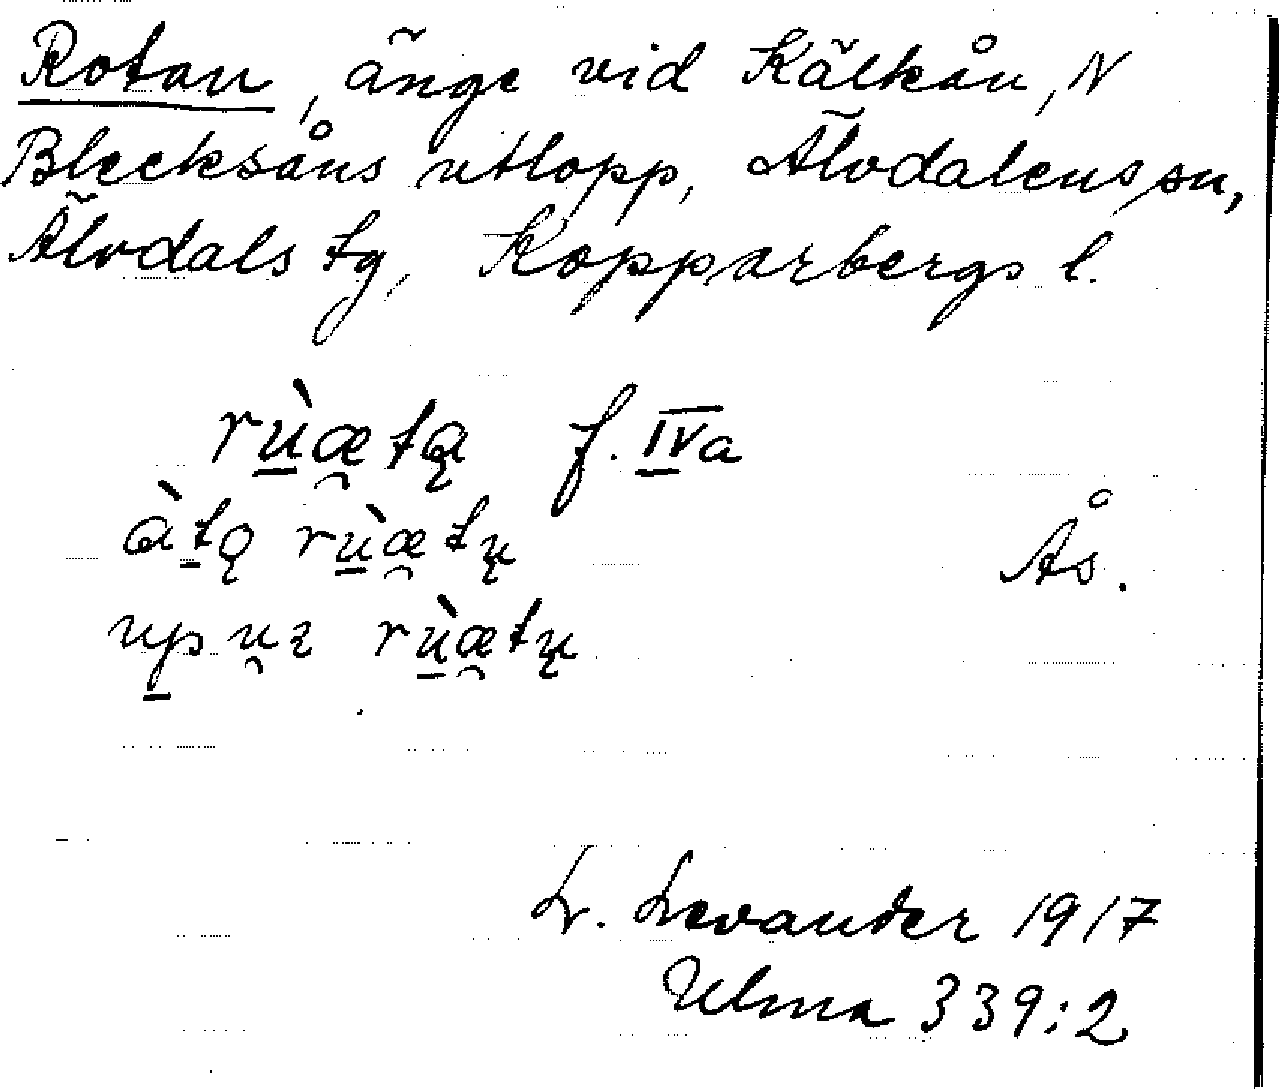 Rotan, änge vid Kälkån, N
Blecksåns utlopp, Älvdalens sn,
Älvdals tg, Kopparbergs l.
rù̱æ̯tą f. IVa
àṯą rù̱æ̯tų
up̱ u̯ą rù̱æ̯tų
Ås.
L. Levander 1917
Ulma 339:2